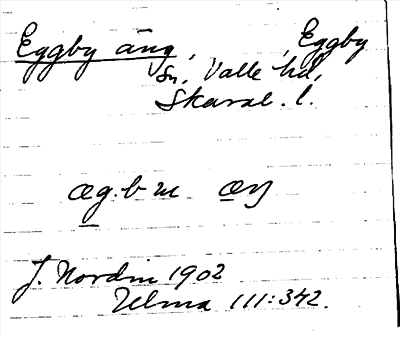 Eggby äng, Eggby
sn, Valle hd,
Skarab. l.
æg.b æŋ
J. Nordin 1902
Ulma 111:342.